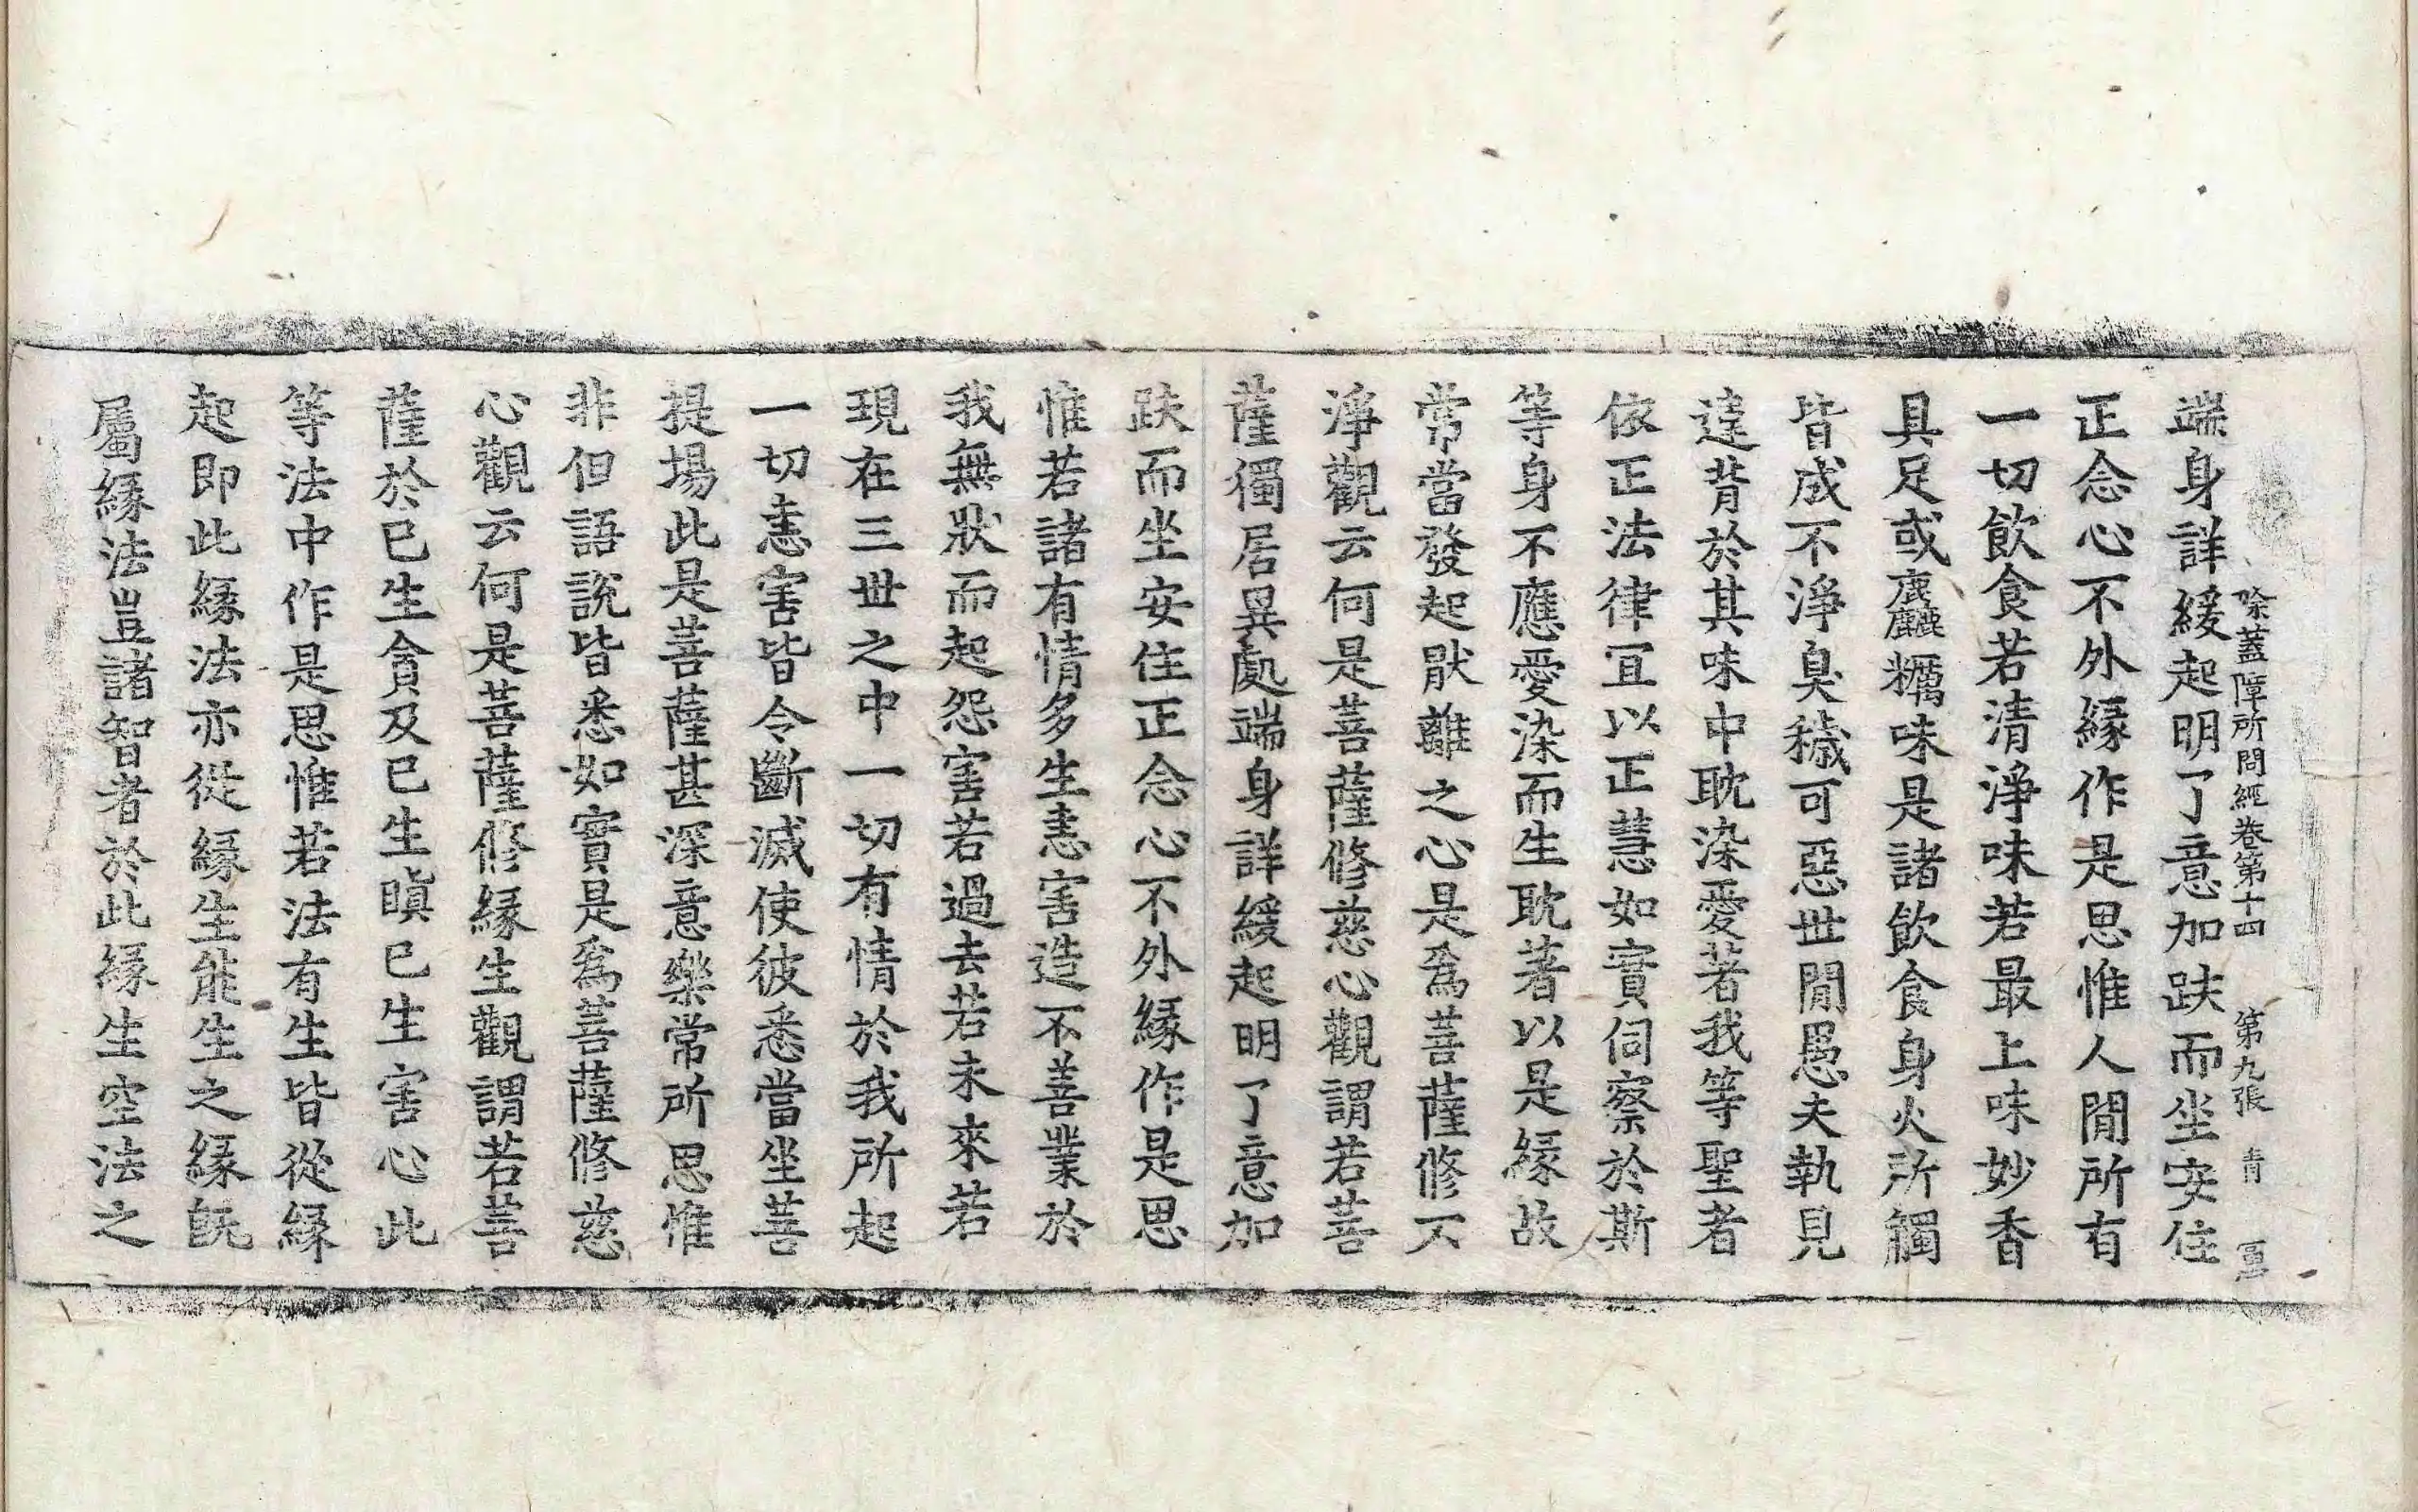 除蓋障所問經卷第十四 第九張 青
端身詳緩起明了意加趺而坐安住
正念心不外緣作是思惟人閒所有
一切飲食若清淨味若最上味妙香
具足或麤糲味是諸飲食身火所觸
皆成不淨臭穢可惡世閒愚夫執見
違背於其味中耽染愛著我等聖者
依正法律冝以正慧如實伺察於斯
等身不應愛染而生耽著以是緣故
常當發起猒離之心是爲菩薩修不
淨觀云何是菩薩修慈心觀謂若菩
薩獨居異處端身詳緩起明了意加
趺而坐安住正念心不外緣作是思
惟若諸有情多生恚害造不善業於
我無狀而起怨害若過去若未來若
現在三世之中一切有情於我所起
一切恚害皆令斷滅使彼悉當坐菩
提場此是菩薩甚深意樂常所思惟
非但語說皆悉如實是爲菩薩修慈
心觀云何是菩薩修緣生觀謂若菩
薩於已生貪及已生瞋已生害心此
等法中作是思惟若法有生皆從緣
起即此緣法亦從緣生能生之緣旣
屬緣法豈諸智者於此緣生空法之